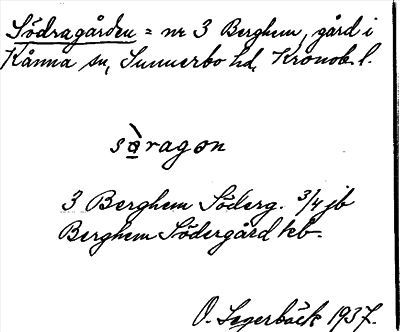 Södragården = nr 3 Berghem, gård i
Kånna sn, Sunnerbo hd, Kronob. l.
sàragon
3 Berghem Söderg. 3/4 jb
Berghem Södergård keb.
O. Segerbäck 1937.